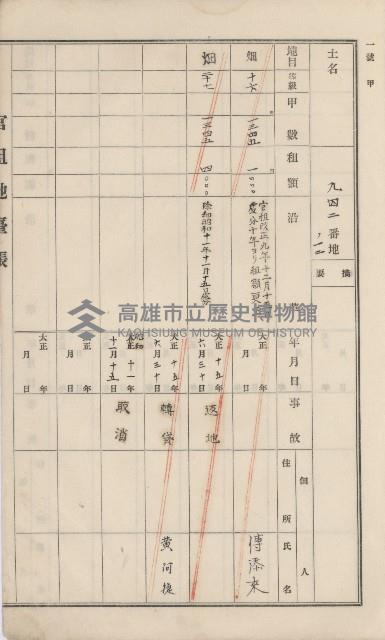 一號甲
土名
九四二番地
ノ一二
摘要
地目
等級
甲數
租額
沿革
年月日
事故
佃人
住所
氏名
畑
十六
一三四五
一〇〇〇
官租改正九年十二月十
大正 年 月 日
傅添來
畑
二十七
一三四五
四〇〇〇
除却昭和十一年十一月十五日
大正十五年六月三十日
返地
大正十五年六月三十日
轉貸
黄河
昭和
大正十一年十一月十五日
取消
大正 年 月 日
大正 年 月 日
官租地臺帳
高雄市立歷史博物館
KAOHSIUNG MUSEUM OF HISTORY